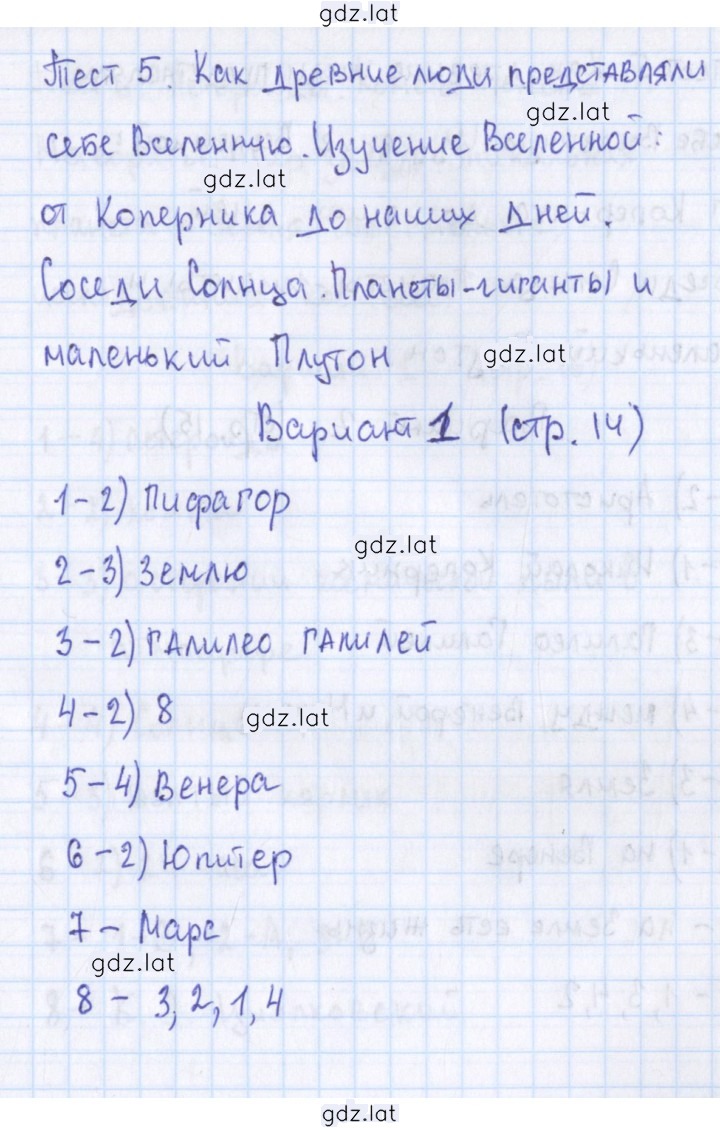 gdz.lat
Тест 5. Как древние люди представляли
gdz.lat
себе Вселенную. Изучение Вселенной:
gdz.lat
от Коперника до наших дней.
Соседи Солнца. Планеты-гиганты и
маленький Плутон
gdz.lat
Вариант 1 (стр. 14)
1-2) Пифагор
gdz.lat
2-3) Землю
3-2) Галилео Галилей
4-2) 8
gdz.lat
5-4) Венера
6-2) Юпитер
7- Марс
gdz.lat
8- 3, 2, 1, 4
gdz.lat